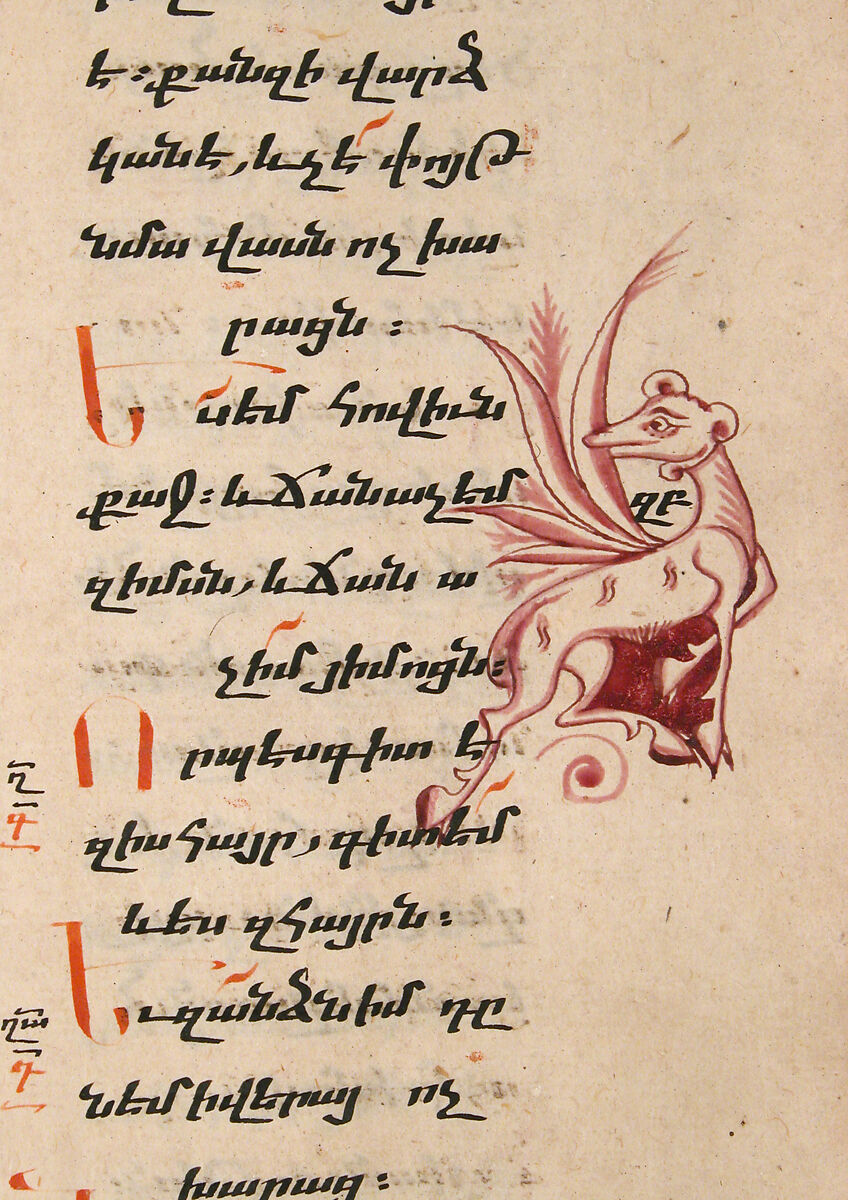 է : քանզի վարձ
կանէ, և չէ՛ փոյթ
նմա վասն ոչ խա
րացն :
Ես եմ հովիւն
քաջ : և ճանաչեմ զը
զիմսն, և ճան ա
չի՛մ յիմոցն :
Որպէս գիտ է
զիս հայր, գիտե՛մ
և ես զհայրն :
Եւ զա՛նձն իմ դը
նեմ ի վերայ ոչ
խարաց :
ղ
դ
ղա
դ